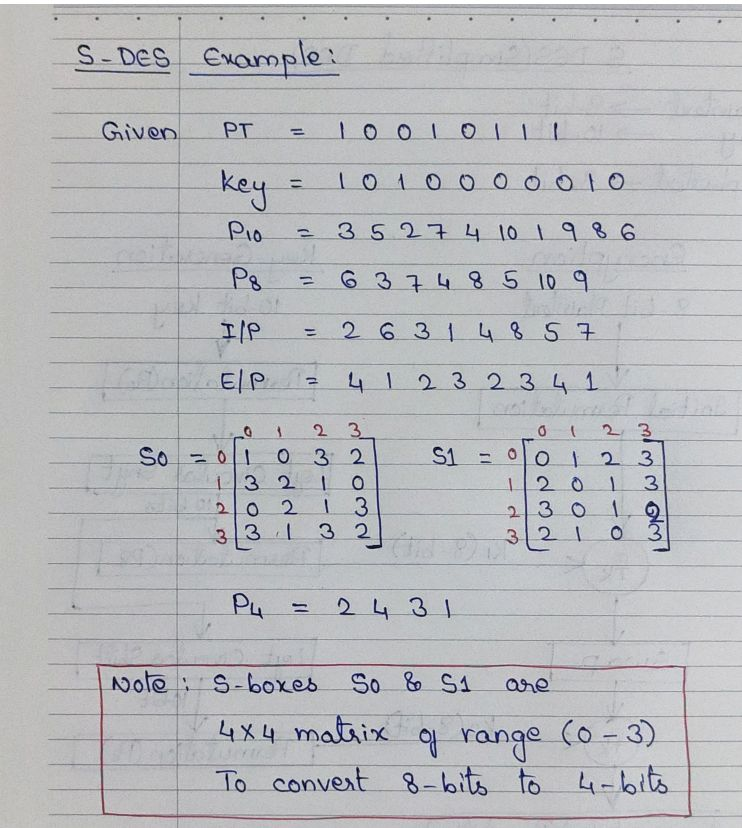 S-DES Example:
Given PT = 1 0 0 1 0 1 1 1
Key = 1 0 1 0 0 0 0 0 1 0
P10 = 3 5 2 7 4 10 1 9 8 6
P8 = 6 3 7 4 8 5 10 9
I/P = 2 6 3 1 4 8 5 7
E/P = 4 1 2 3 2 3 4 1
0 1 2 3 0 1 2 3
S0 = 0 1 0 3 2 S1 = 0 0 1 2 3
1 3 2 1 0 1 2 0 1 3
2 0 2 1 3 2 3 0 1 0
3 3 1 3 2 3 2 1 0 3
P4 = 2 4 3 1
Note: S-boxes S0 & S1 are
4x4 matrix of range (0-3)
To convert 8-bits to 4-bits